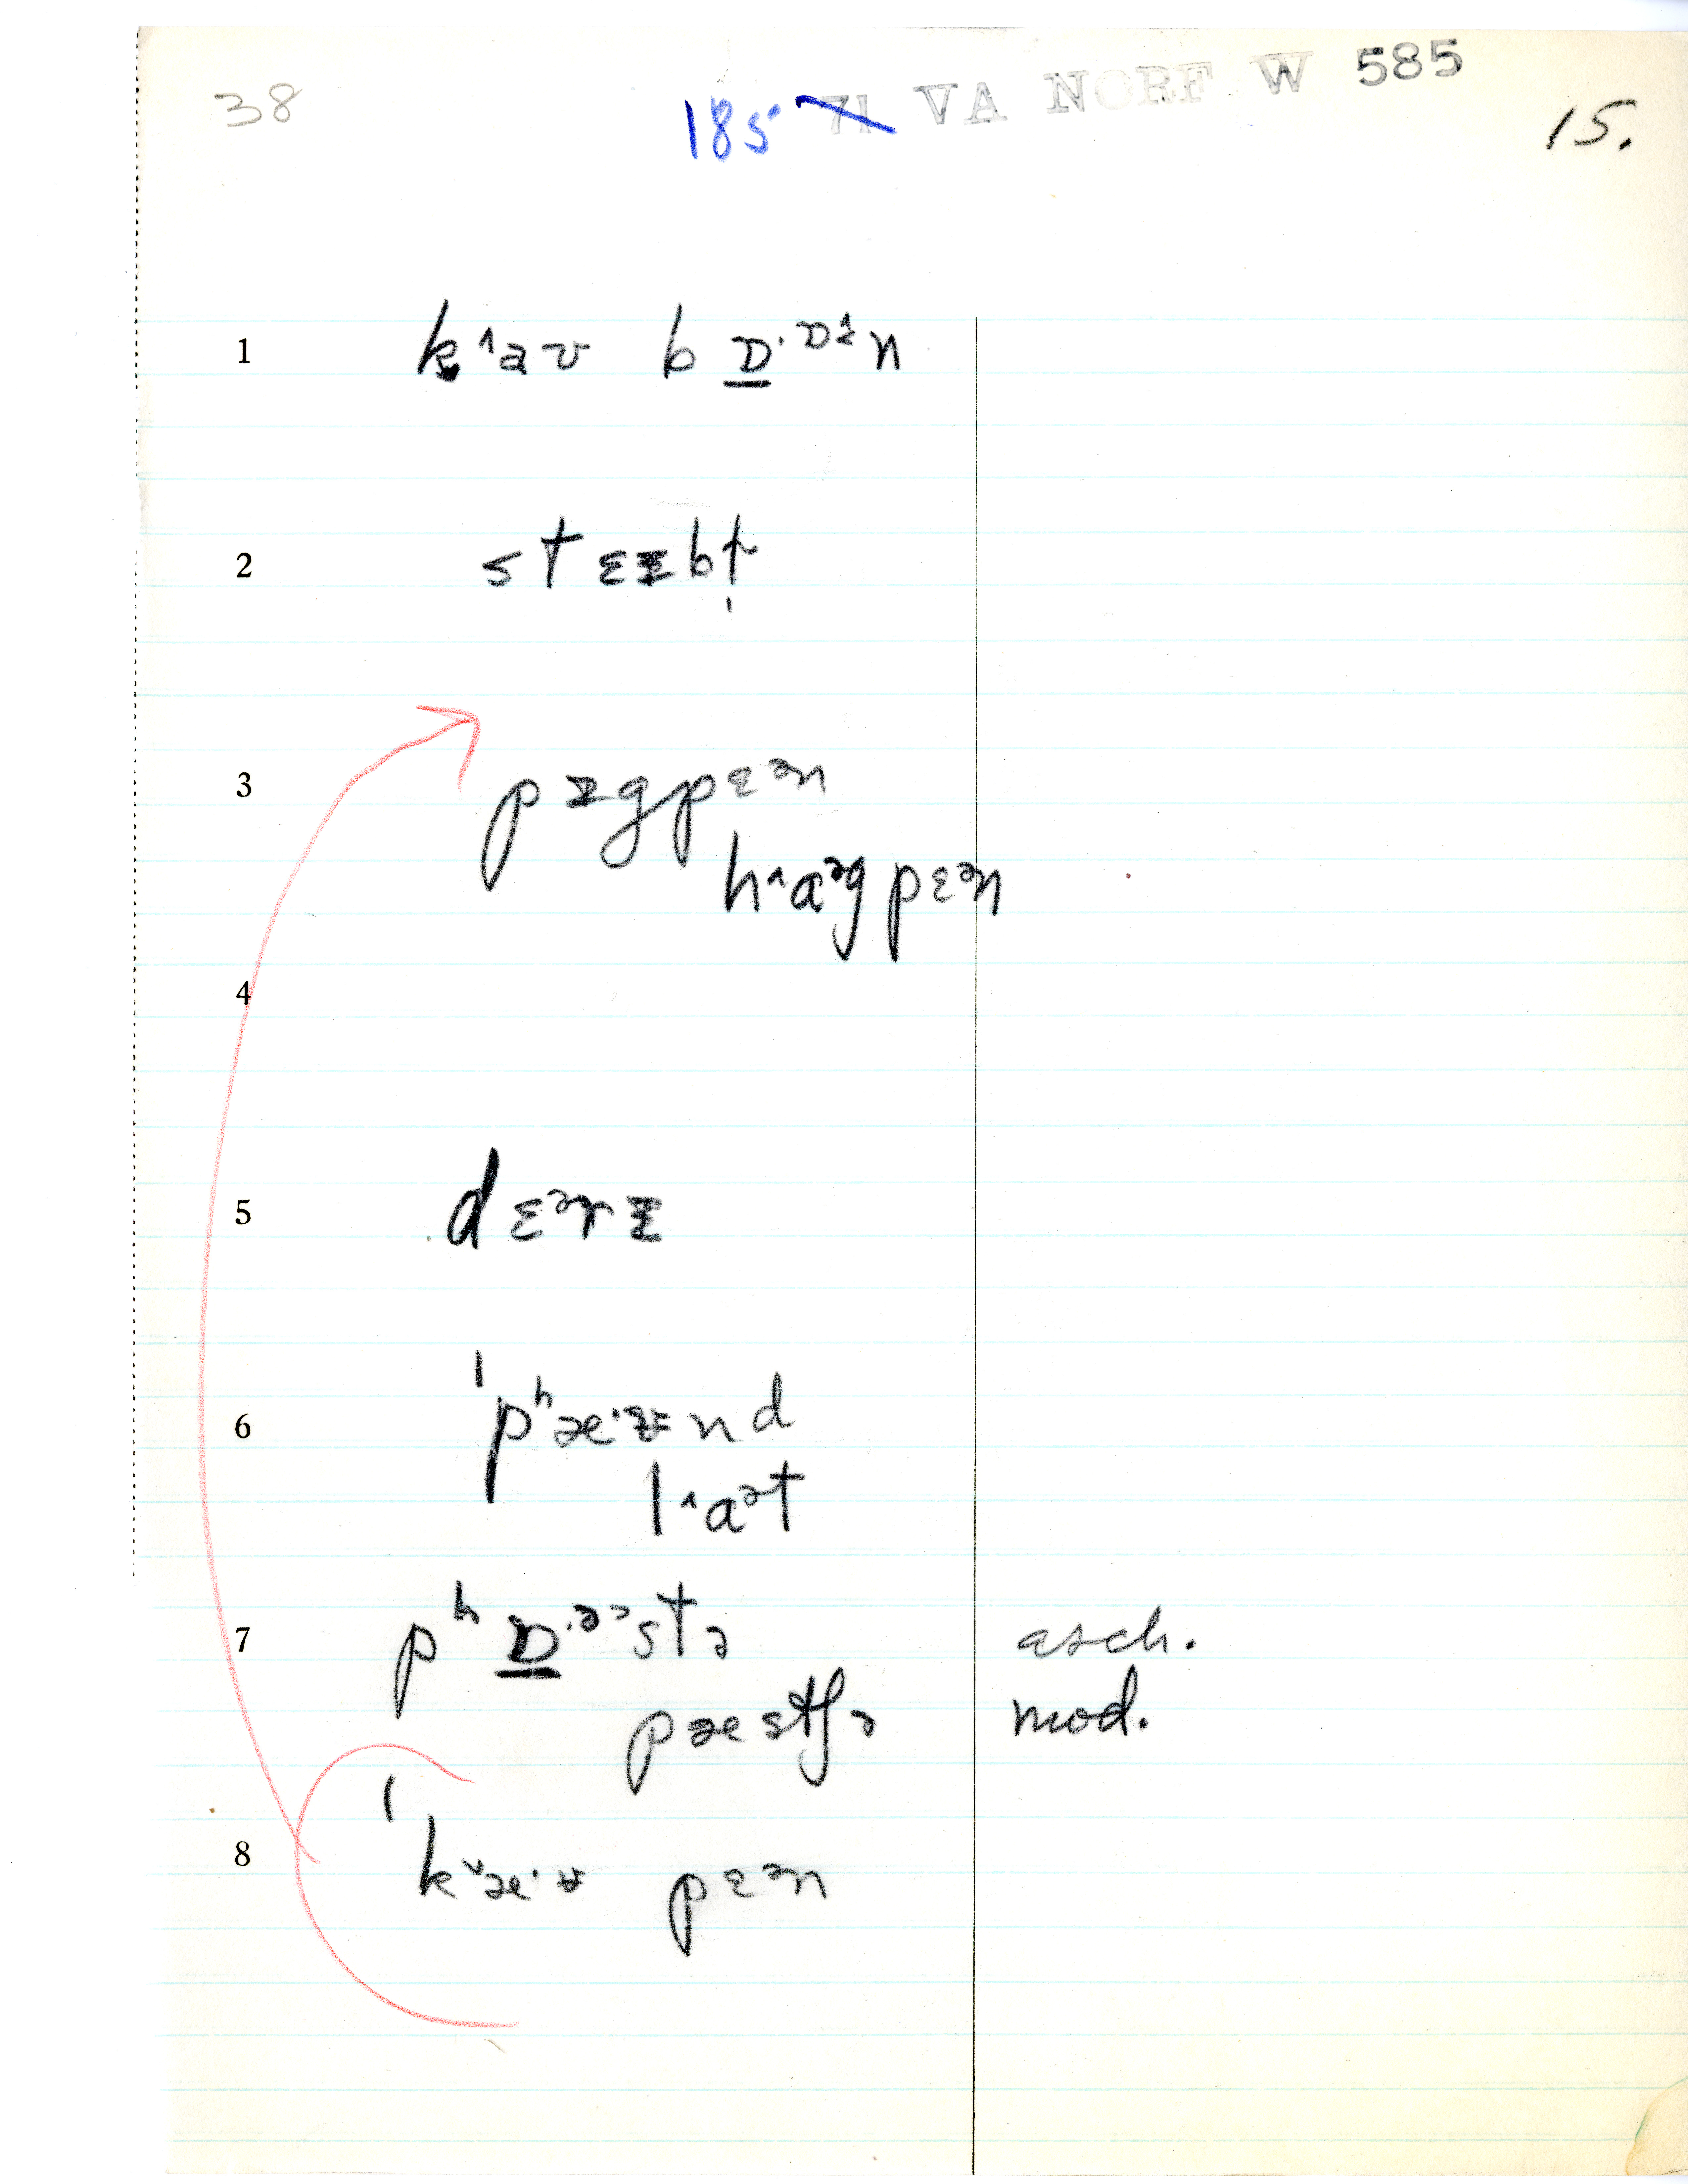 38 185 71 VA NORF W 585 15.
1 k^aʊ bɒ̲·ɒᵻn
2 stɛᵻbɫ̩
3 pᵻgpɛᵊn
h^aᵊgpɛᵊn
4
5 dɛᵊrᵻ
6 ˈpʰæ·ᵻnd
l^aᵊt
7 pʰɒ̲·ᵊᵓstə asch.
pæstʃə mod.
8 ˈkᵛæ·ʊ pɛᵊn